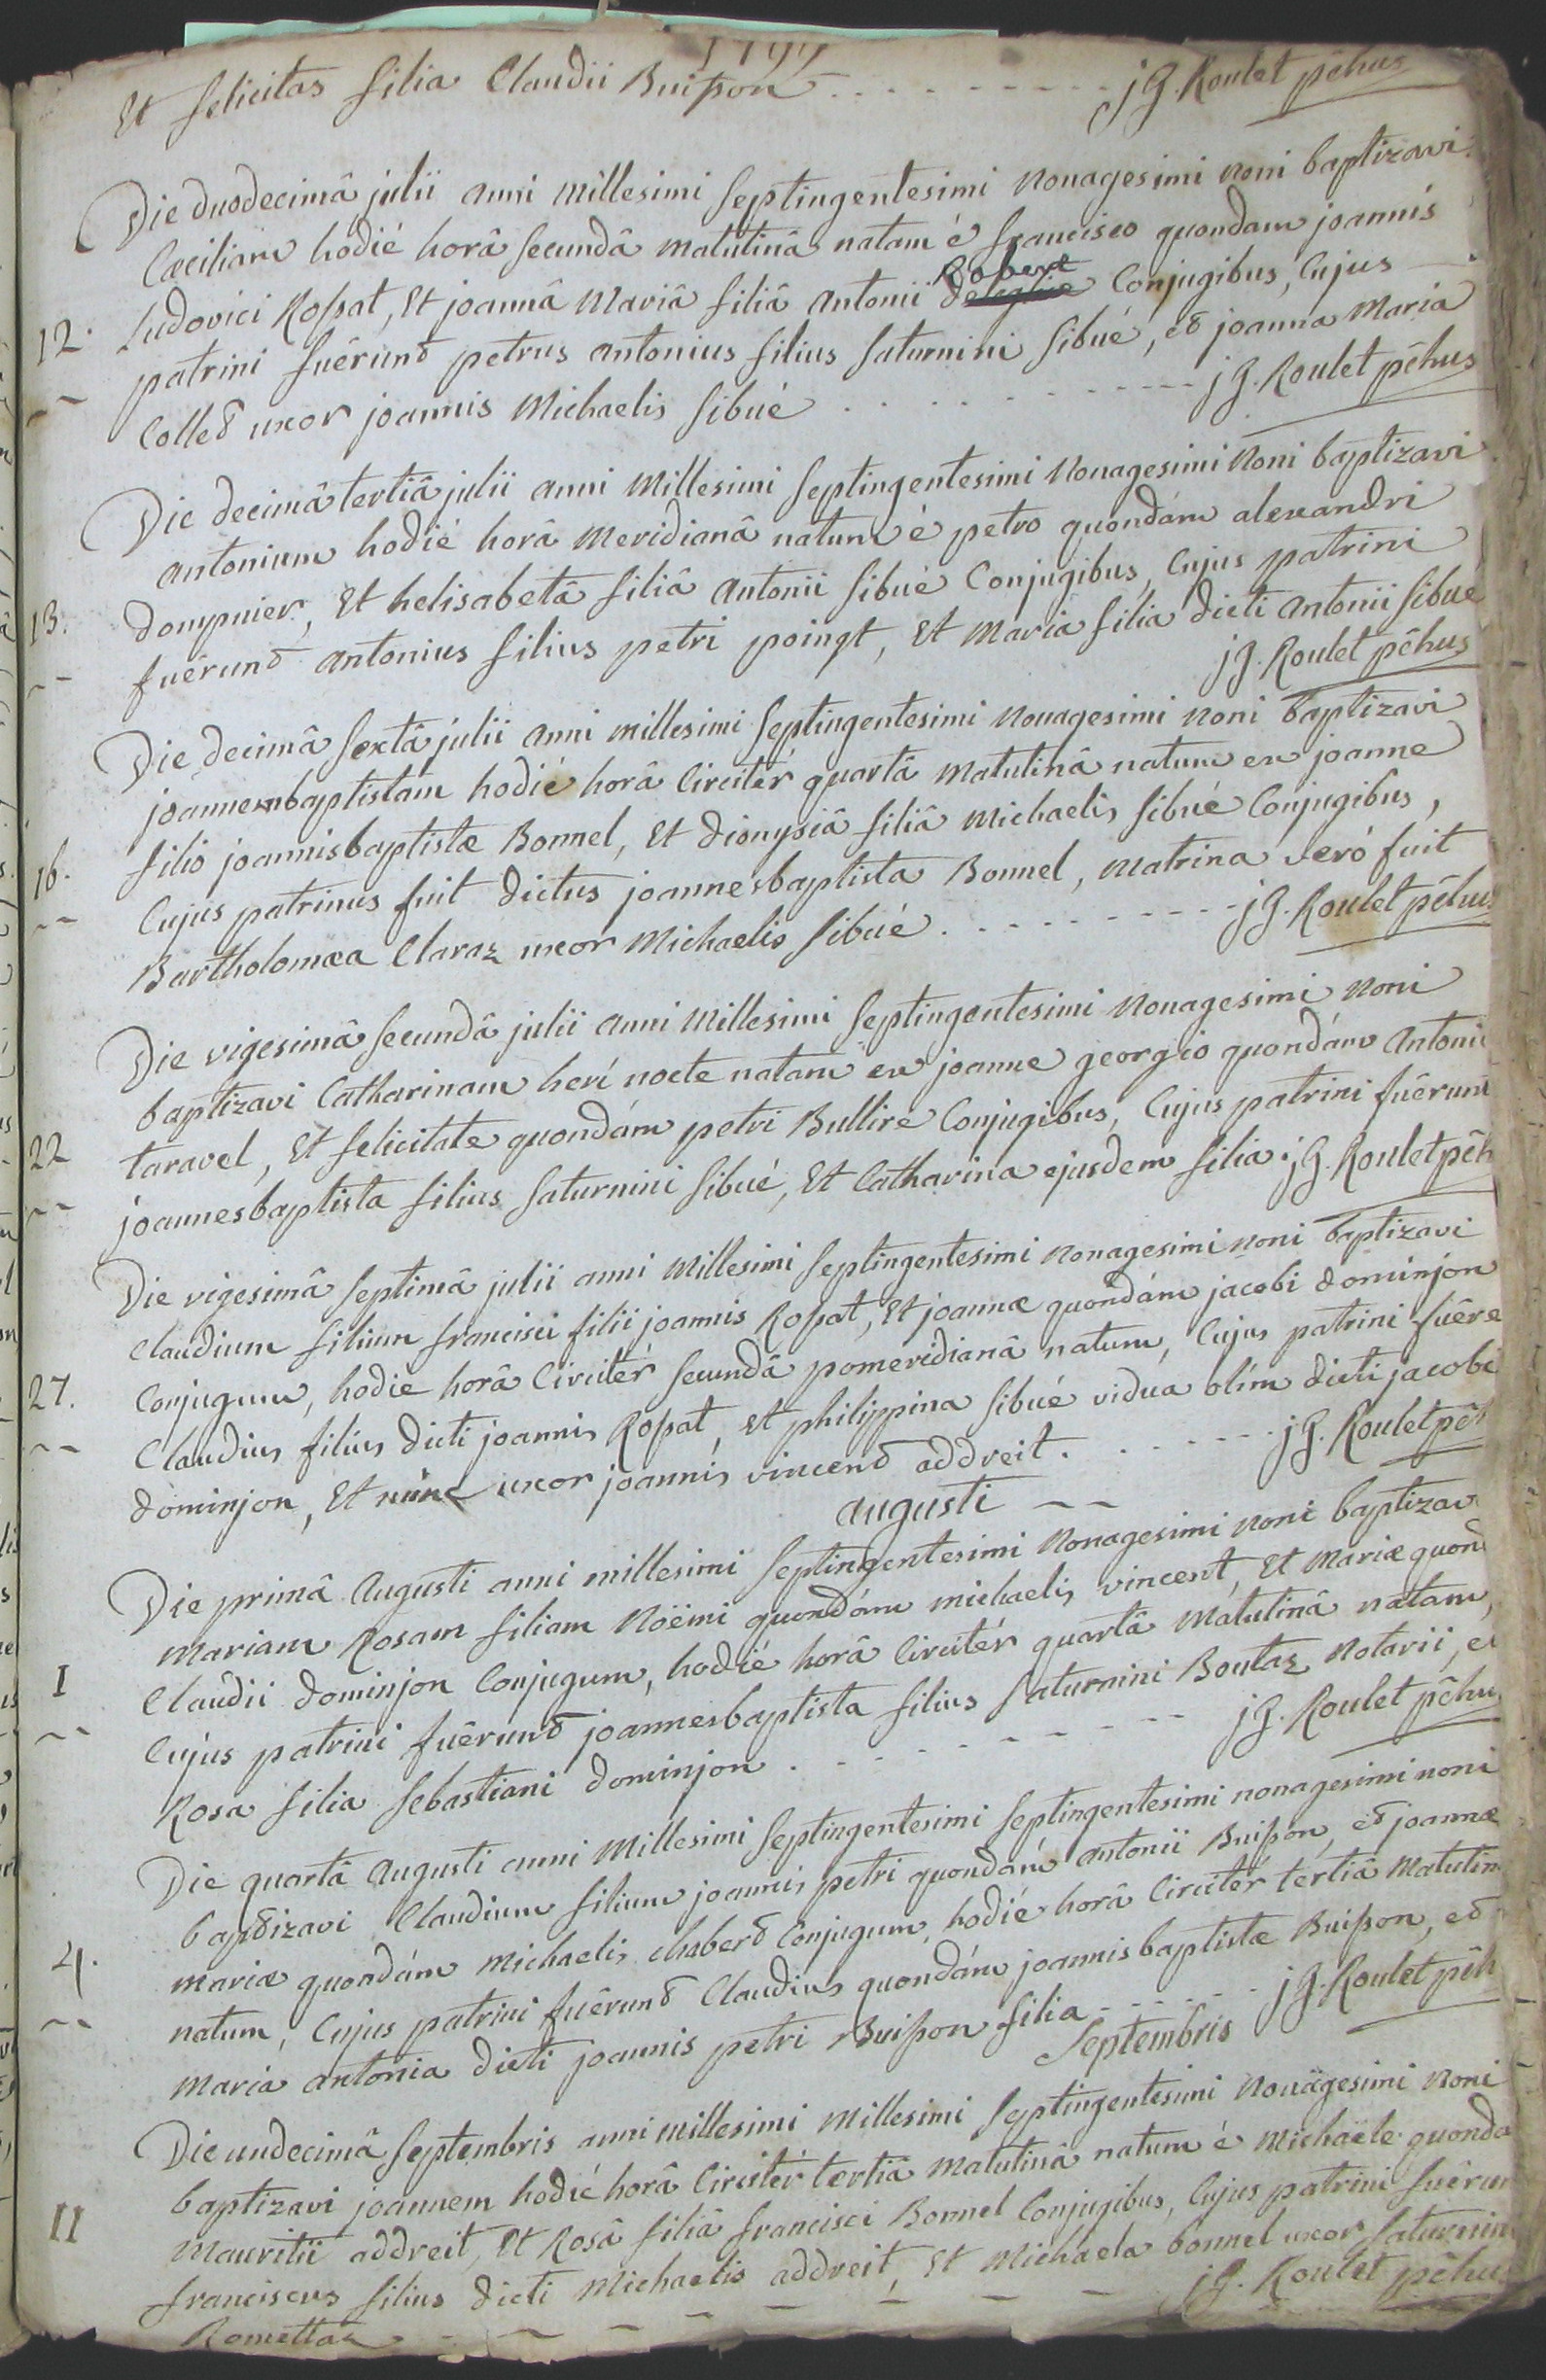 1799
Et felicitas filia Claudii Buisson - - - - - - - - - - j G. Roulet pēhus
Die duodecimâ julii anni Millesimi Septingentesimi Nonagesimi noni baptizavi
Cæciliam hodié horâ Secundâ matutinâ natam é francisco quondam joannis
12. Ludovici Rossat, Et joannâ Mariâ filiâ antonii Robert Conjugibus, Cujus
patrini fuêrunt petrus antonius filius Saturnini Sibué, et joanna Maria
Collet uxor joannis Michaelis Sibué - - - - - - - - - - j G. Roulet pēhus
Die decimâ tertiâ julii anni Millesimi Septingentesimi Nonagesimi Noni baptizavi
antonium hodié horâ Meridianâ natum é petro quondám alexandri
13. dompnier, Et helisabetâ filiâ antonii Sibué Conjugibus, Cujus patrini
fuêrunt antonius filius petri poingt, Et Maria filia dicti antonii Sibué
j G. Roulet pēhus
Die decimâ Sextâ julii anni millesimi Septingentesimi Nonagesimi noni baptizavi
joannembaptistam hodié horâ Circitér quartâ Matutinâ natum ex joanne
16. filio joannisbaptistæ Bonnel, Et dionysiâ filiâ Michaelis Sibué Conjugibus,
Cujus patrinus fuit dictus joannesbaptista Bonnel, Matrina veró fuit
Bartholomæa Claraz uxor Michaelis Sibué - - - - - - - - - - j G. Roulet pēhus
Die vigesimâ Secundâ julii anni Millesimi Septingentesimi Nonagesimi noni
baptizavi Catharinam herí nocte natam ex joanne georgio quondám Antonii
22 taravel, Et felicitate quondám petri Bullire Conjugibus, Cujus patrini fuêrunt
joannesbaptista filius Saturnini Sibué, Et Catharina ejusdem filia. j G. Roulet pēh
Die vigesimâ Septimâ julii anni Millesimi Septingentesimi Nonagesimi noni baptizavi
Claudium filium francisci filii joannis Rossat, Et joannæ quondám jacobi dominjon
27. Conjugum, hodie horâ Circitér Secundâ pomeridianâ natum, Cujus patrini fuêre
Claudius filius dicti joannis Rossat, et philippina Sibué vidua olím dicti jacobi
dominjon, Et nunc uxor joannis vincent addreit. - - - - - - - j G. Roulet pēh
augusti - -
Die primâ Augusti anni millesimi Septingentesimi Nonagesimi noni baptizav
Mariam Rosam filiam Noëmi quondám michaelis vincent, Et Mariæ quond
I Claudii dominjon Conjugum, hodié horâ Circitér quartâ Matutinâ natam,
Cujus patrini fuêrunt joannesbaptista filius Saturnini Boutaz Notarii, et
Rosa filia Sebastiani dominjon - - - - - - - - - - j G. Roulet pēhu
Die quartâ Augusti anni Millesimi Septingentesimi Septingentesimi nonagesimi noni
baptizavi Claudium filium joannis petri quondám antonii Buisson, et joannæ
4. mariæ quondám Michaelis chabert Conjugum, hodié horâ Circitér tertiâ Matutin
natum, Cujus patrini fuêrunt Claudius quondám joannisbaptistæ Buisson, et
Maria antonia dicti joannis petri Buisson filia - - - - - - j G. Roulet pēh
Septembris
Die undecimâ Septembris anni Millesimi Millesimi Septingentesimi Nonagesimi noni
baptizavi joannem hodié horâ Circitér tertiâ Matutinâ natum é Michaële quonda
II Mauritii addreit, Et Rosâ filiâ francisci Bonnel Conjugibus, Cujus patrini fuêrun
franciscus filius dicti Michaelis addreit, Et Michaela bonnel uxor Saturnin
Romettaz - - - - - - - - j G. Roulet pēhus